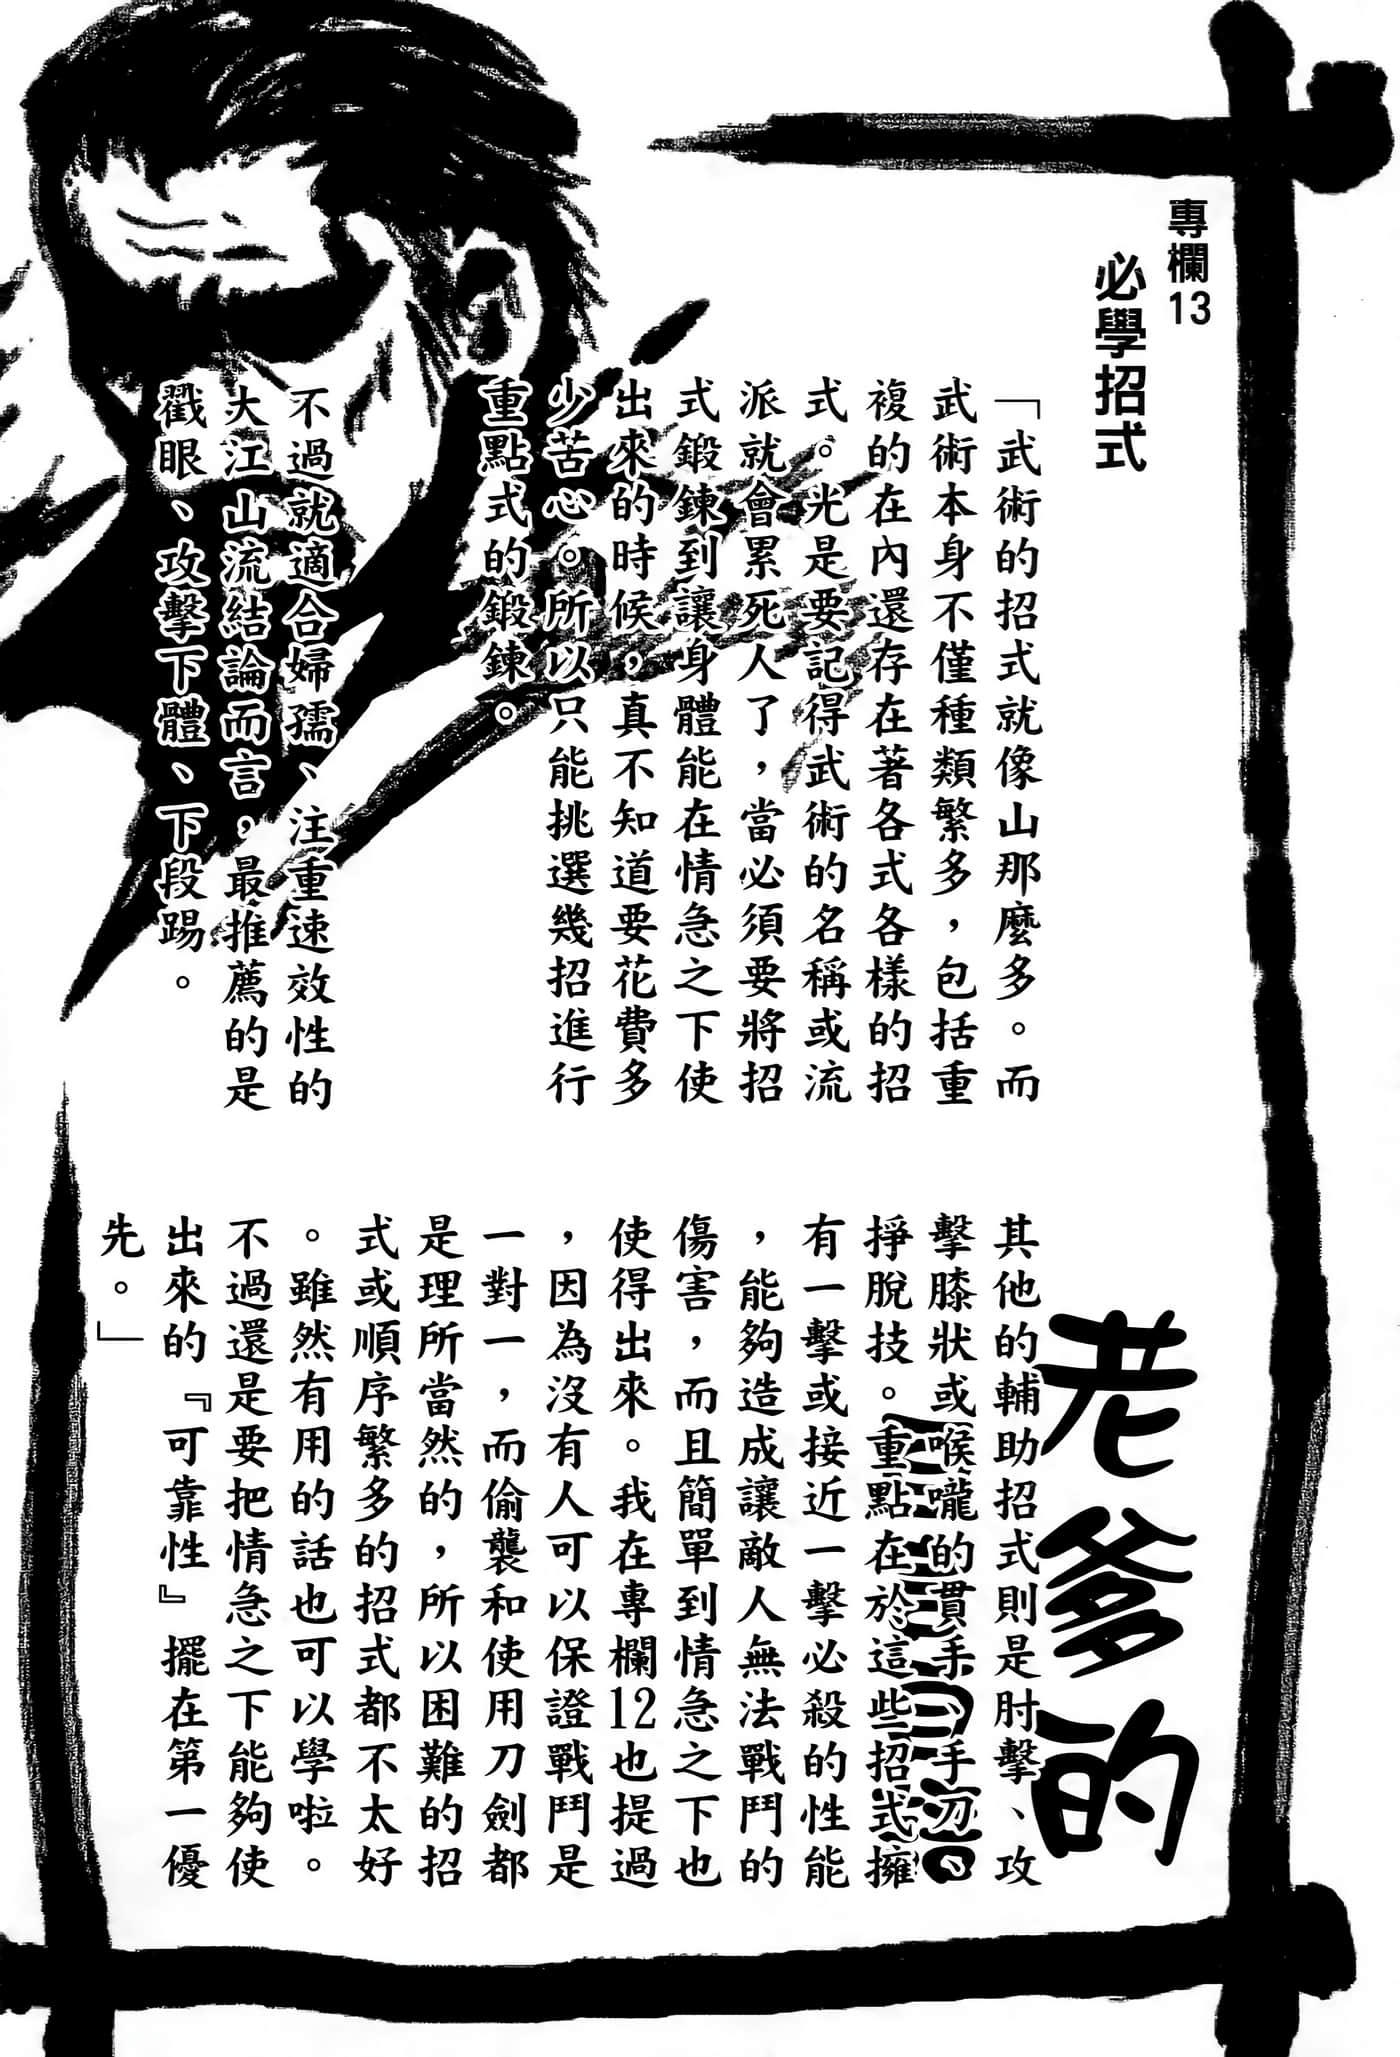 專欄13
必學招式
「武術的招式就像山那麼多。而
武術本身不僅種類繁多，包括重
複的在內還存在著各式各樣的招
式。光是要記得武術的名稱或流
派就會累死人了，當必須要將招
式鍛鍊到讓身體能在情急之下使
出來的時候，真不知道要花費多
少苦心。所以只能挑選幾招進行
重點式的鍛鍊。
不過就適合婦孺、注重速效性的
大江山流結論而言，最推薦的是
戳眼、攻擊下體、下段踢。
老爹的
其他的輔助招式則是肘擊、攻
擊膝狀或喉嚨的貫手、手刀、
掙脫技。重點在於這些招式擁
有一擊或接近一擊必殺的性能
，能夠造成讓敵人無法戰鬥的
傷害，而且簡單到情急之下也
使得出來。我在專欄12也提過
，因為沒有人可以保證戰鬥是
一對一，而偷襲和使用刀劍都
是理所當然的，所以困難的招
式或順序繁多的招式都不太好
。雖然有用的話也可以學啦。
不過還是要把情急之下能夠使
出來的『可靠性』擺在第一優
先。」